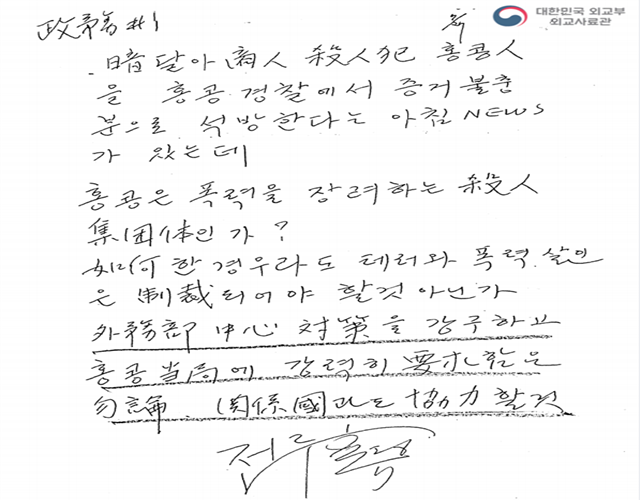 政務#1
대한민국 외교부
외교사료관
暗달아 商人 殺人犯 홍콩人
을 홍콩 경찰에서 증거 불충
분으로 석방한다는 아침 NEWS
가 있는데
홍콩은 폭력을 장려하는 殺人
集団体인가?
如何한 경우라도 테러와 폭력 살인
은 制裁되어야 할것 아닌가
外務部 中心 対策을 강구하고
홍콩 当局에 강력히 要求함은
勿論. 関係國과도 協力할것